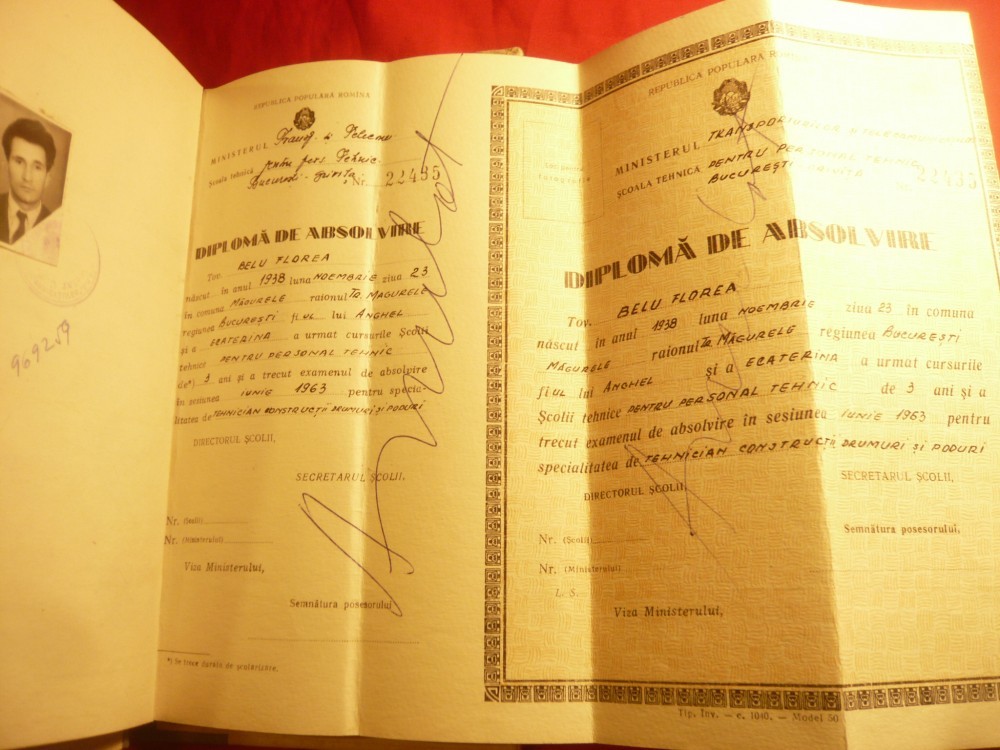 969259
REPUBLICA POPULARĂ ROMÎNĂ
MINISTERUL Transp. și Telecom
Școala tehnică pentru pers. Tehnic
București-Grivița Nr. 22435
DIPLOMĂ DE ABSOLVIRE
Tov. BELU FLOREA
născut în anul 1938 luna NOEMBRIE ziua 23
în comuna MĂGURELE raionul TR. MAGURELE
regiunea BUCUREȘTI fiul lui ANGHEL
și a ECATERINA a urmat cursurile Școlii
tehnice PENTRU PERSONAL TEHNIC
de*) 3 ani și a trecut examenul de absolvire
în sesiunea IUNIE 1963 pentru specia-
litatea de TEHNICIAN CONSTRUCȚII DRUMURI ȘI PODURI
DIRECTORUL ȘCOLII,
SECRETARUL ȘCOLII,
Nr. (Școlii)
Nr. (Ministerului)
Viza Ministerului,
Semnătura posesorului,
*) Se trece durata de școlarizare.
Anulat
REPUBLICA POPULARĂ
MINISTERUL TRANSPORTURILOR ȘI TELECOMUNICAȚIILOR
ȘCOALA TEHNICĂ PENTRU PERSONAL TEHNIC
BUCUREȘTI GRIVIȚA 22435
DIPLOMĂ DE ABSOLVIRE
Tov. BELU FLOREA
născut în anul 1938 luna NOEMBRIE ziua 23 în comuna
MĂGURELE raionul TR. MAGURELE regiunea BUCUREȘTI
fiul lui ANGHEL și a ECATERINA a urmat cursurile
Școlii tehnice PENTRU PERSONAL TEHNIC de 3 ani și a
trecut examenul de absolvire în sesiunea IUNIE 1963 pentru
specialitatea de TEHNICIAN CONSTRUCȚII DRUMURI ȘI PODURI
DIRECTORUL ȘCOLII,
SECRETARUL ȘCOLII,
Semnătura posesorului,
Nr. (Școlii)
Nr. (Ministerului)
L. S.
Viza Ministerului,
Anulat
Tip. Înv. — c. 1040. — Model 50